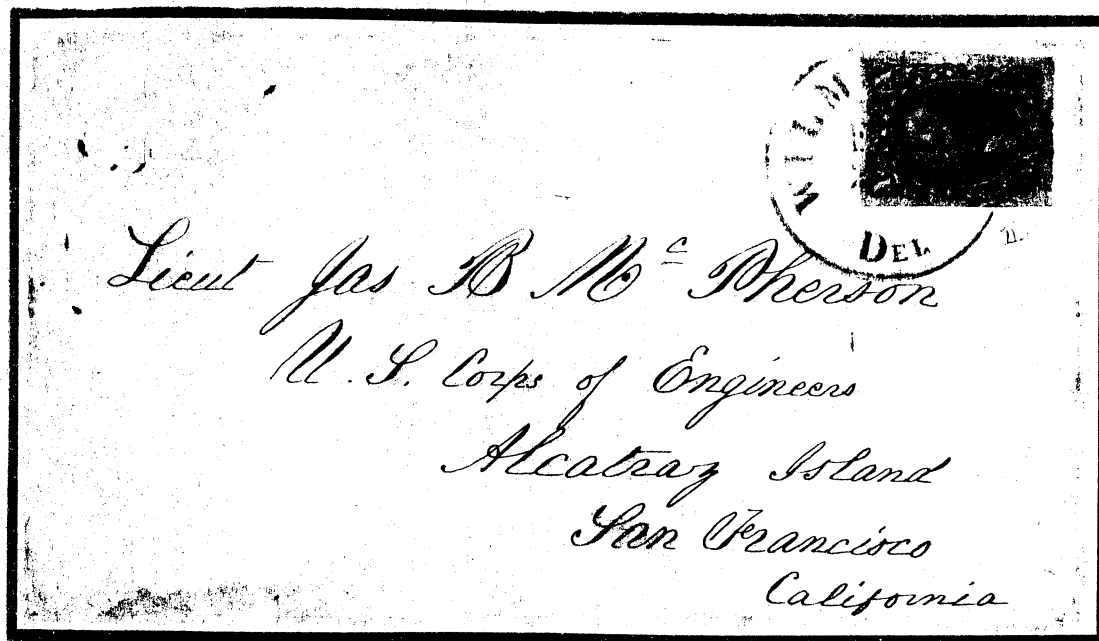 WILM
DEL
Lieut Jas B McPherson
U. S. Corps of Engineers
Alcatraz Island
San Francisco
California